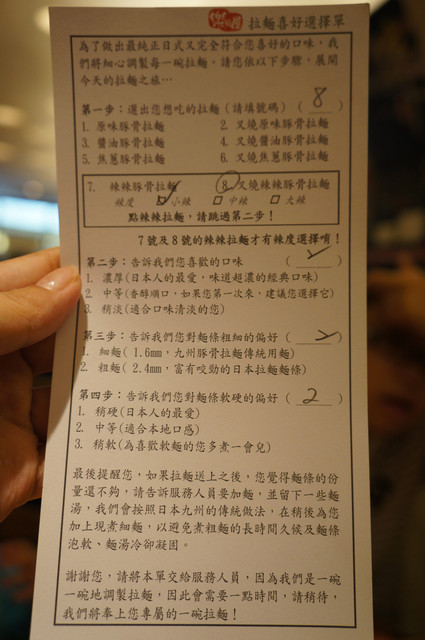 拉麵喜好選擇單
為了做出最純正日式又完全符合您喜好的口味，我
們將細心調製每一碗拉麵。請您依以下步驟，展開
今天的拉麵之旅…
第一步：選出您想吃的拉麵（請填號碼）（ 8 ）
1. 原味豚骨拉麵　2. 叉燒原味豚骨拉麵
3. 醬油豚骨拉麵　4. 叉燒醬油豚骨拉麵
5. 焦蔥豚骨拉麵　6. 叉燒焦蔥豚骨拉麵
7. 辣辣豚骨拉麵　8. 叉燒辣辣豚骨拉麵
辣度　☑小辣　□中辣　□大辣
點辣辣拉麵，請跳過第二步！
7號及8號的辣辣拉麵才有辣度選擇唷！
第二步：告訴我們您喜歡的口味（ ✓ ）
1. 濃厚(日本人的最愛，味道超濃的經典口味)
2. 中等(香醇順口，如果您第一次來，建議您選擇它)
3. 稍淡(適合口味清淡的您)
第三步：告訴我們您對麵條粗細的偏好（ ）
1. 細麵( 1.6mm，九州豚骨拉麵傳統用麵)
2. 粗麵( 2.4mm，富有咬勁的日本拉麵麵條)
第四步：告訴我們您對麵條軟硬的偏好（ 2 ）
1. 稍硬(日本人的最愛)
2. 中等(適合本地口感)
3. 稍軟(為喜歡軟麵的您多煮一會兒)
最後提醒您，如果拉麵送上之後，您覺得麵條的份
量還不夠，請告訴服務人員要加麵，並留下一些麵
湯，我們會按照日本九州的傳統做法，在稍後為您
加上現煮細麵，以避免煮粗麵的長時間久候及麵條
泡軟、麵湯冷卻凝固。
謝謝您，請將本單交給服務人員，因為我們是一碗
一碗地調製拉麵，因此會需要一點時間，請稍待，
我們將奉上您專屬的一碗拉麵！